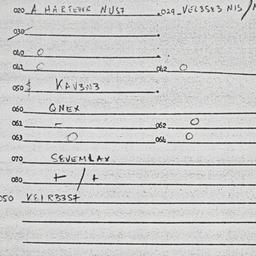 020 A MARTEUR NUST 029_VEL3583 NIS/
030
040 O
041 O 042 O
050 KAV3N3
060 QNEX
061 - 062 O
063 O 064 O
070 SEVEMLAX
080 + / +
050 VEIR335T